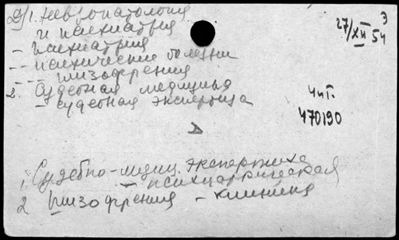 Д/1. Невропатология
и психиатрия
– Психиатрия
– – психические болезни
– – – шизофрения
2. Судебная медицина
– судебная экспертиза
27/XII 54
Э
Чит.
470190
Д
1. Судебно-медиц. экспертиза
– психиатрическая
2 Шизофрения – клиника